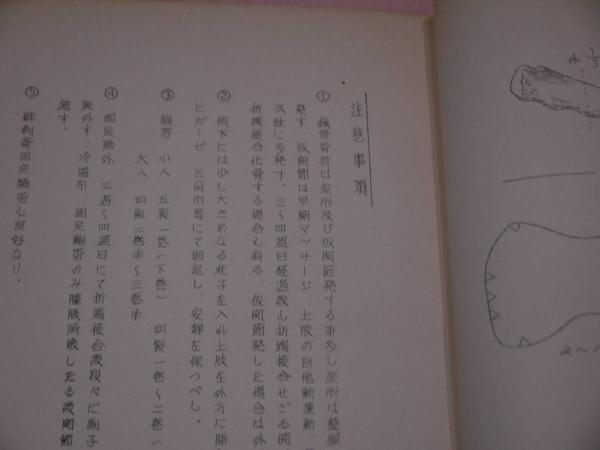 注意事項
① 鎖骨骨折は変形及び仮関節発する事多し変形は整復
発す、仮関節は早期マッサージ、上肢の自他動運動、
久性に多発す。三〜四週日経過後も折端接合せざる時
折端接合化骨する場合も有る、仮関節発した場合は外
② 腋下には少し大きめなる枕子を入れ上肢を外方に開
にガーゼ、三角巾等にて固定し、安静を保つべし。
③ 繃帯 小人 五裂一巻(下巻) 四裂一巻〜二巻(
大人 四裂二巻半〜三巻半
④ 固定除外 三週〜四週日にて折端接合後段々に副子
除外す、冷湿布 固定繃帯のみ腫脹消散したる後関節
施す。
⑤ 絆創膏固定繃帯も良好なり。
外 1/3
2〜